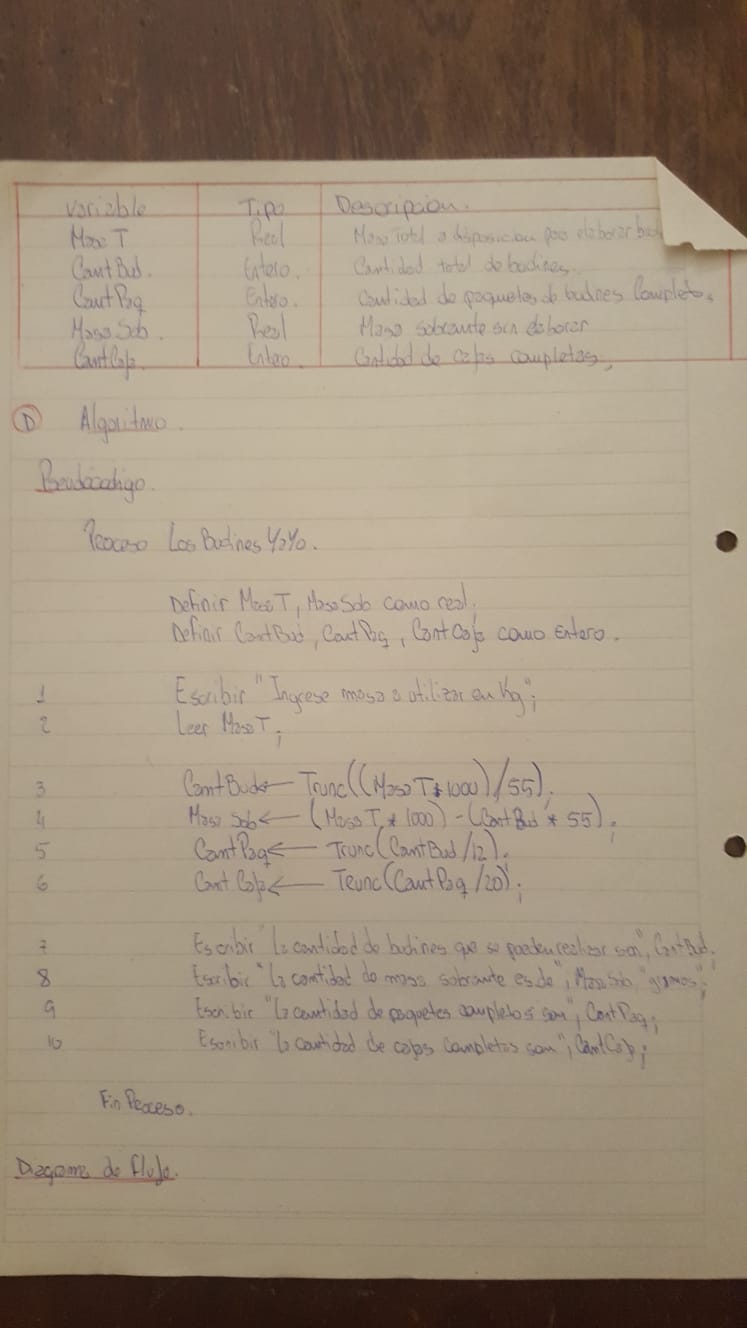 Variable Tipo Descripcion.
Masa T Real Masa Total a disposicion para elaborar
Cant Bud. Entero. Cantidad total de budines.
Cant Paq Entero. Cantidad de paquetes de budines Completos.
Masa Sob. Real Masa sobrante sin elaborar
Cant Caja. Entero. Cantidad de cajas completas.
D Algoritmo.
Pseudocodigo.
Proceso Los Budines YoYo.
Definir Masa T, Masa Sob como real.
Definir Cant Bud, Cant Paq, Cant Caja como Entero.
1 Escribir "Ingrese masa a utilizar en Kg";
2 Leer Masa T;
3 Cant Bud ← Trunc((Masa T * 1000) / 55);
4 Masa Sob ← (Masa T * 1000) - (Cant Bud * 55);
5 Cant Paq ← Trunc(Cant Bud / 12);
6 Cant Caja ← Trunc(Cant Paq / 20);
7 Escribir "La cantidad de budines que se pueden realizar son", Cant Bud;
8 Escribir "la cantidad de masa sobrante es de", Masa Sob, "gramos";
9 Escribir "la cantidad de paquetes completos son", Cant Paq;
10 Escribir "la cantidad de cajas completas son", Cant Caja;
Fin Proceso.
Diagrama de flujo.